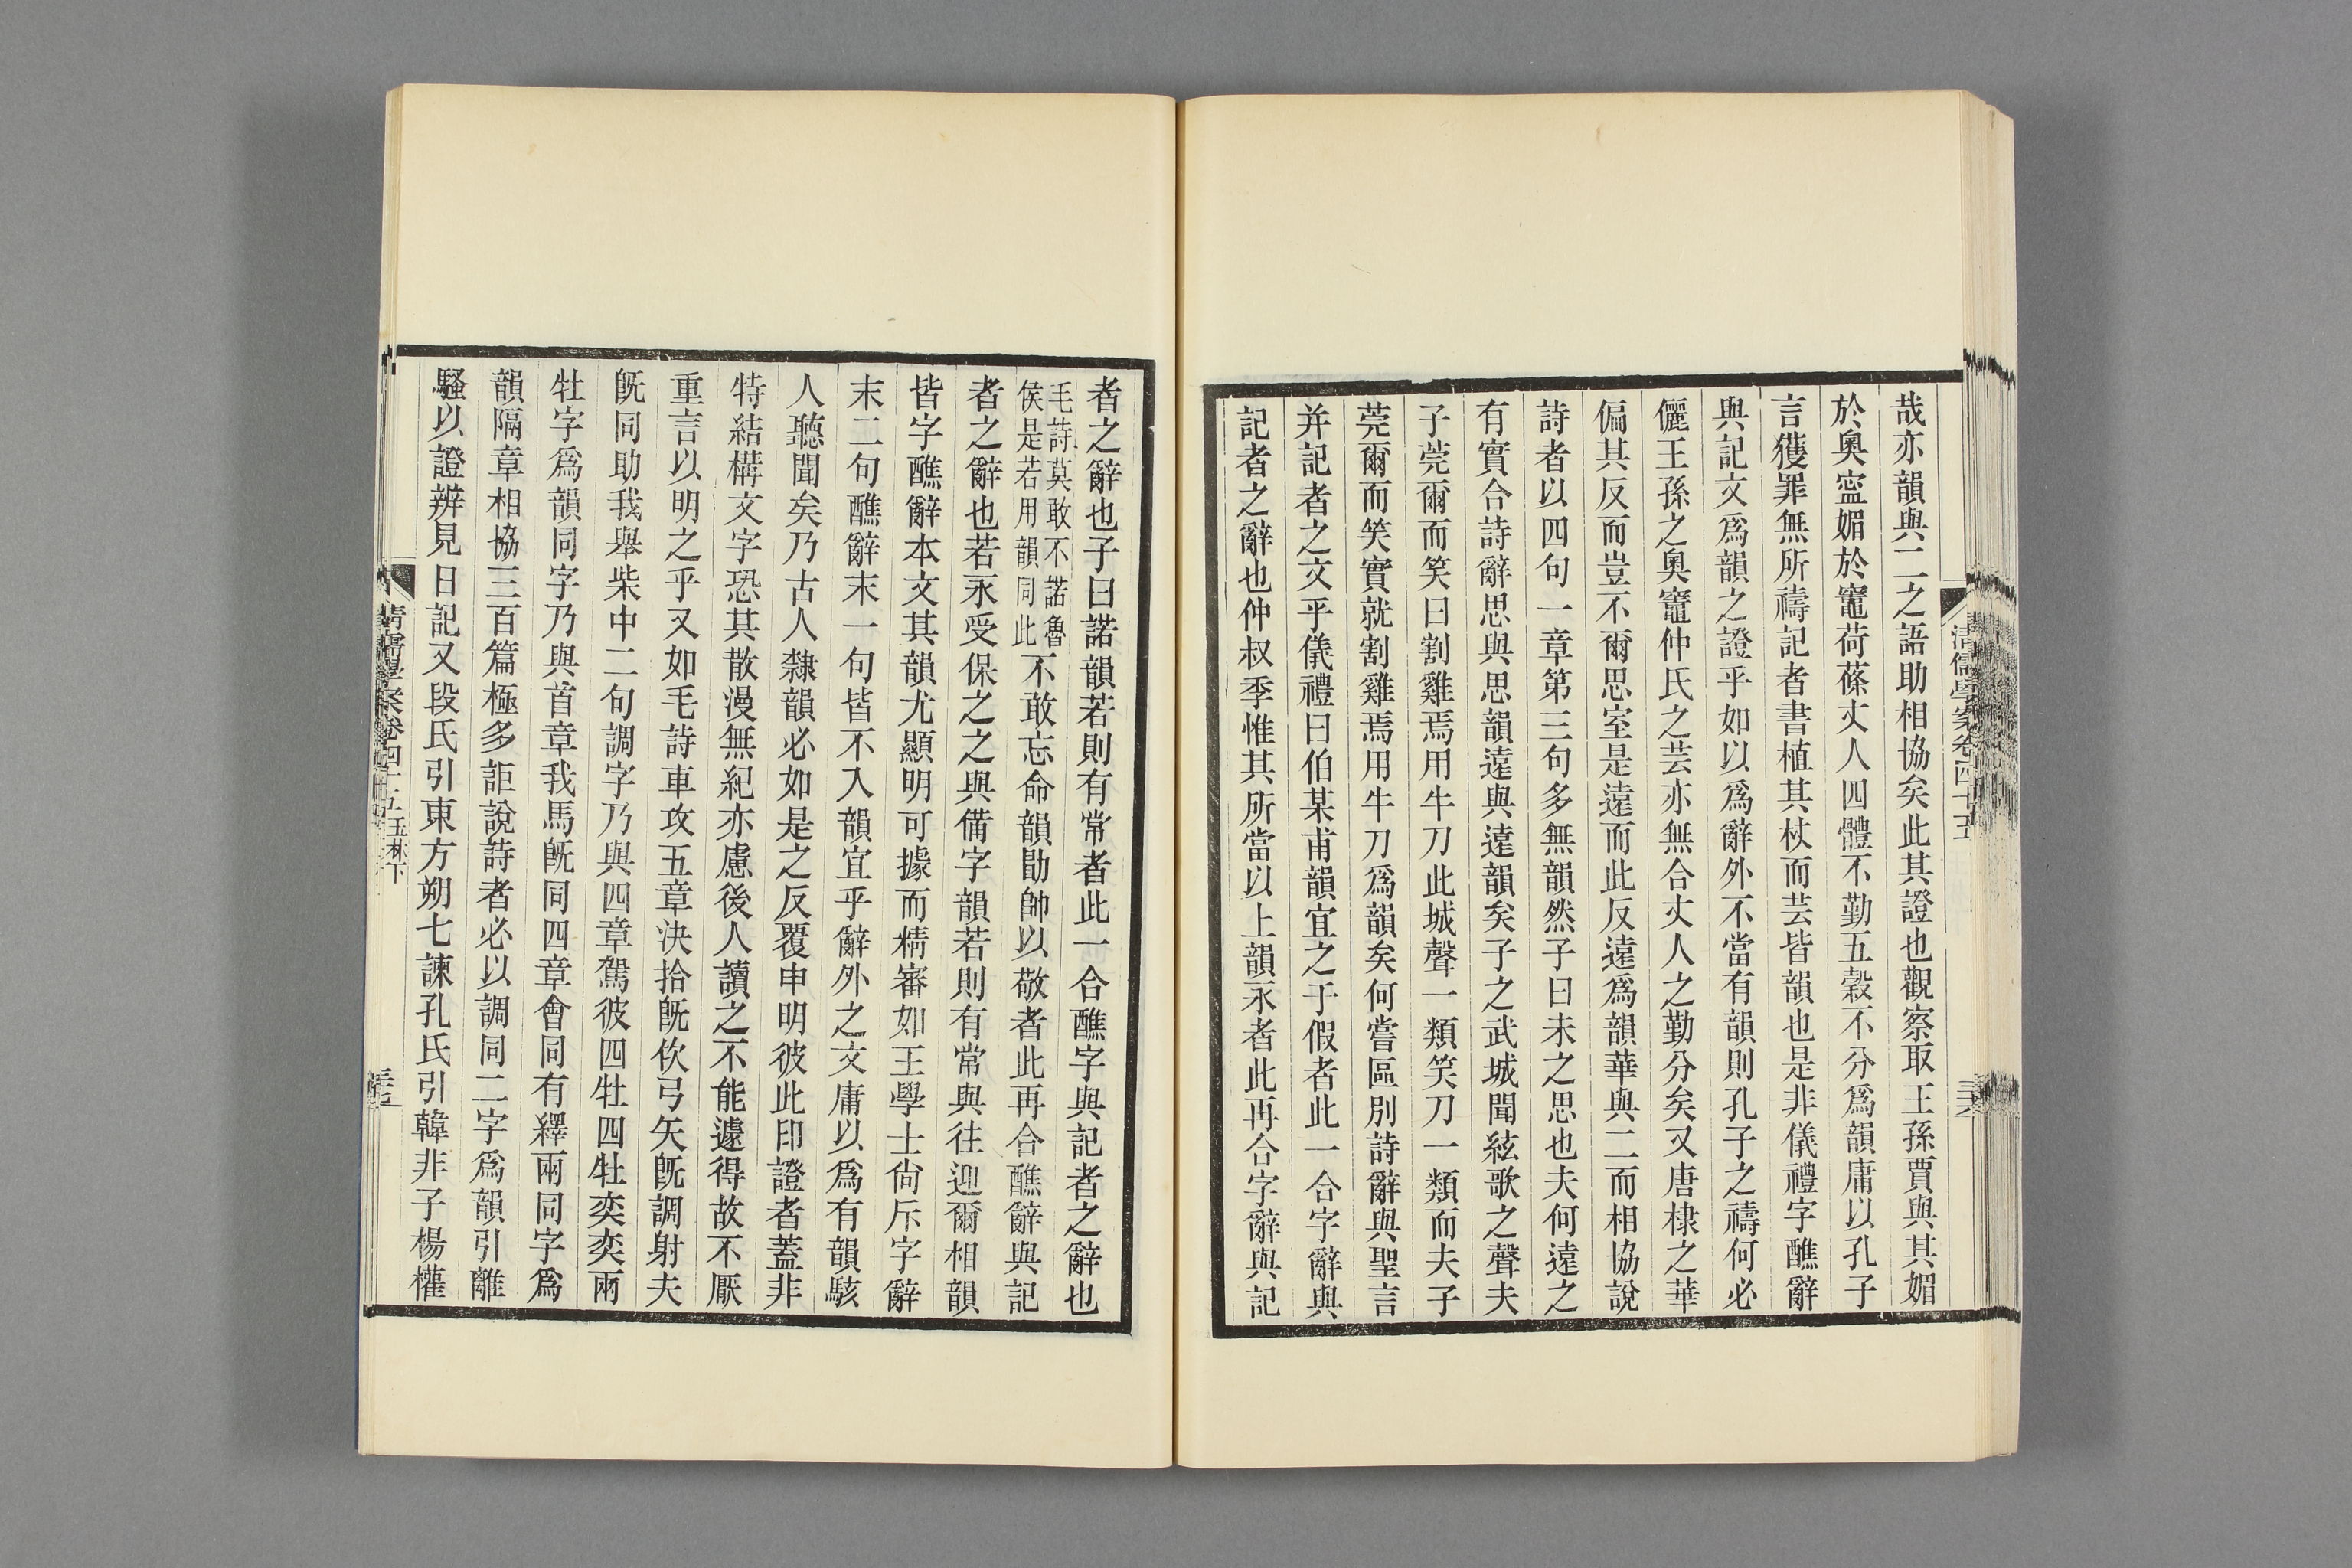 哉亦韻與二之語助相協矣此其證也觀察取王孫賈與其媚
於奧寍媚於竈荷蓧丈人四體不勤五穀不分爲韻庸以孔子
言獲罪無所禱記者書植其杖而芸皆韻也是非儀禮字醮辭
與記文爲韻之證乎如以爲辭外不當有韻則孔子之禱何必
儷王孫之奧竈仲氏之芸亦無合丈人之勤分矣又唐棣之華
偏其反而豈不爾思室是遠而此反遠爲韻華與二而相協說
詩者以四句一章第三句多無韻然子曰未之思也夫何遠之
有實合詩辭思與思韻遠與遠韻矣子之武城聞絃歌之聲夫
子莞爾而笑曰割雞焉用牛刀此城聲一類笑刀一類而夫子
莞爾而笑實就割雞焉用牛刀爲韻矣何嘗區別詩辭與聖言
并記者之文乎儀禮曰伯某甫韻宜之于假者此一合字辭與
記者之辭也仲叔季惟其所當以上韻永者此再合字辭與記
清儒學案卷四十五
三六
者之辭也子曰諾韻若則有常者此一合醮字與記者之辭也
毛詩莫敢不諾魯
侯是若用韻同此
不敢忘命韻勖帥以敬者此再合醮辭與記
者之辭也若永受保之之與備字韻若則有常與往迎爾相韻
皆字醮辭本文其韻尤顯明可據而精審如王學士尙斥字辭
末二句醮辭末一句皆不入韻宜乎辭外之文庸以爲有韻駭
人聽聞矣乃古人隸韻必如是之反覆申明彼此印證者蓋非
特結構文字恐其散漫無紀亦慮後人讀之不能遽得故不厭
重言以明之乎又如毛詩車攻五章決拾旣佽弓矢旣調射夫
旣同助我舉柴中二句調字乃與四章駕彼四牡四牡奕奕兩
牡字爲韻同字乃與首章我馬旣同四章會同有繹兩同字爲
韻隔章相協三百篇極多詎說詩者必以調同二字爲韻引離
騷以證辨見日記又段氏引東方朔七諫孔氏引韓非子楊權
清儒學案卷四十五 玉林下